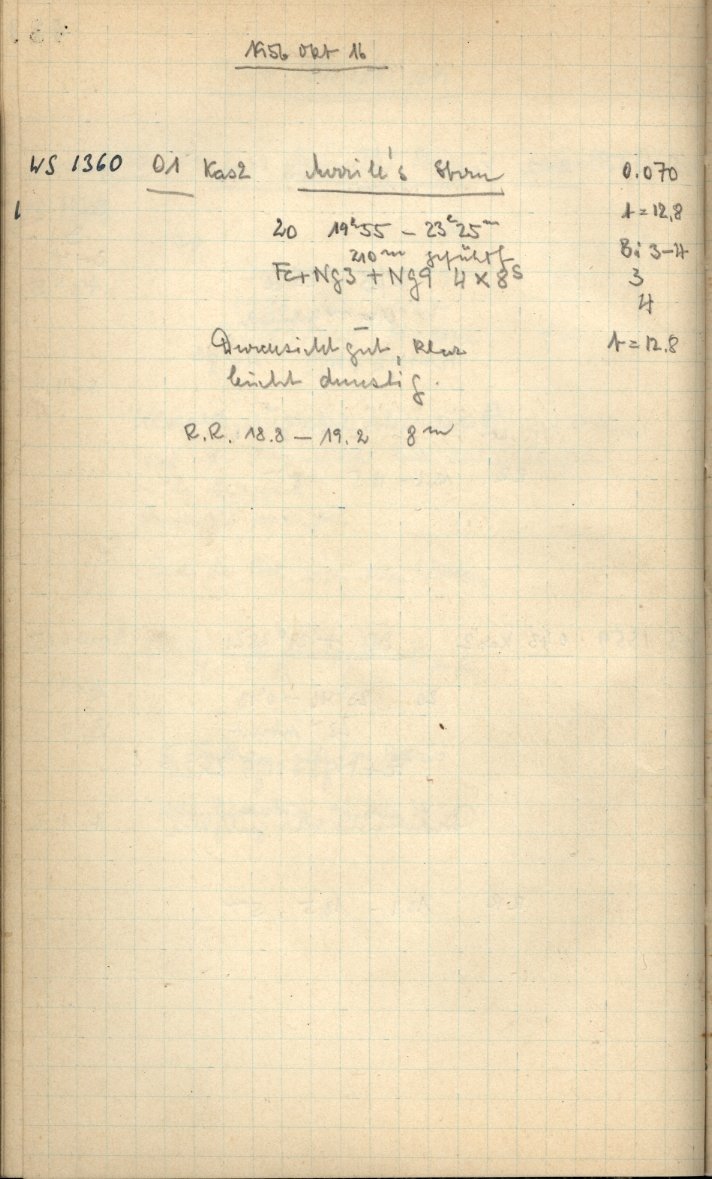 1956 Okt 16
WS 1360 01 Kas2 Merrill's Stern 0.070
t = 12,8
20 19h55 – 23h25m
210m geführt Bi 3–4
Fe + Ng3 + Ng9 4 x 8s 3
4
Durchsicht gut, klar t = 12.8
leicht dunstig.
R.R. 18.8 – 19.2 8m